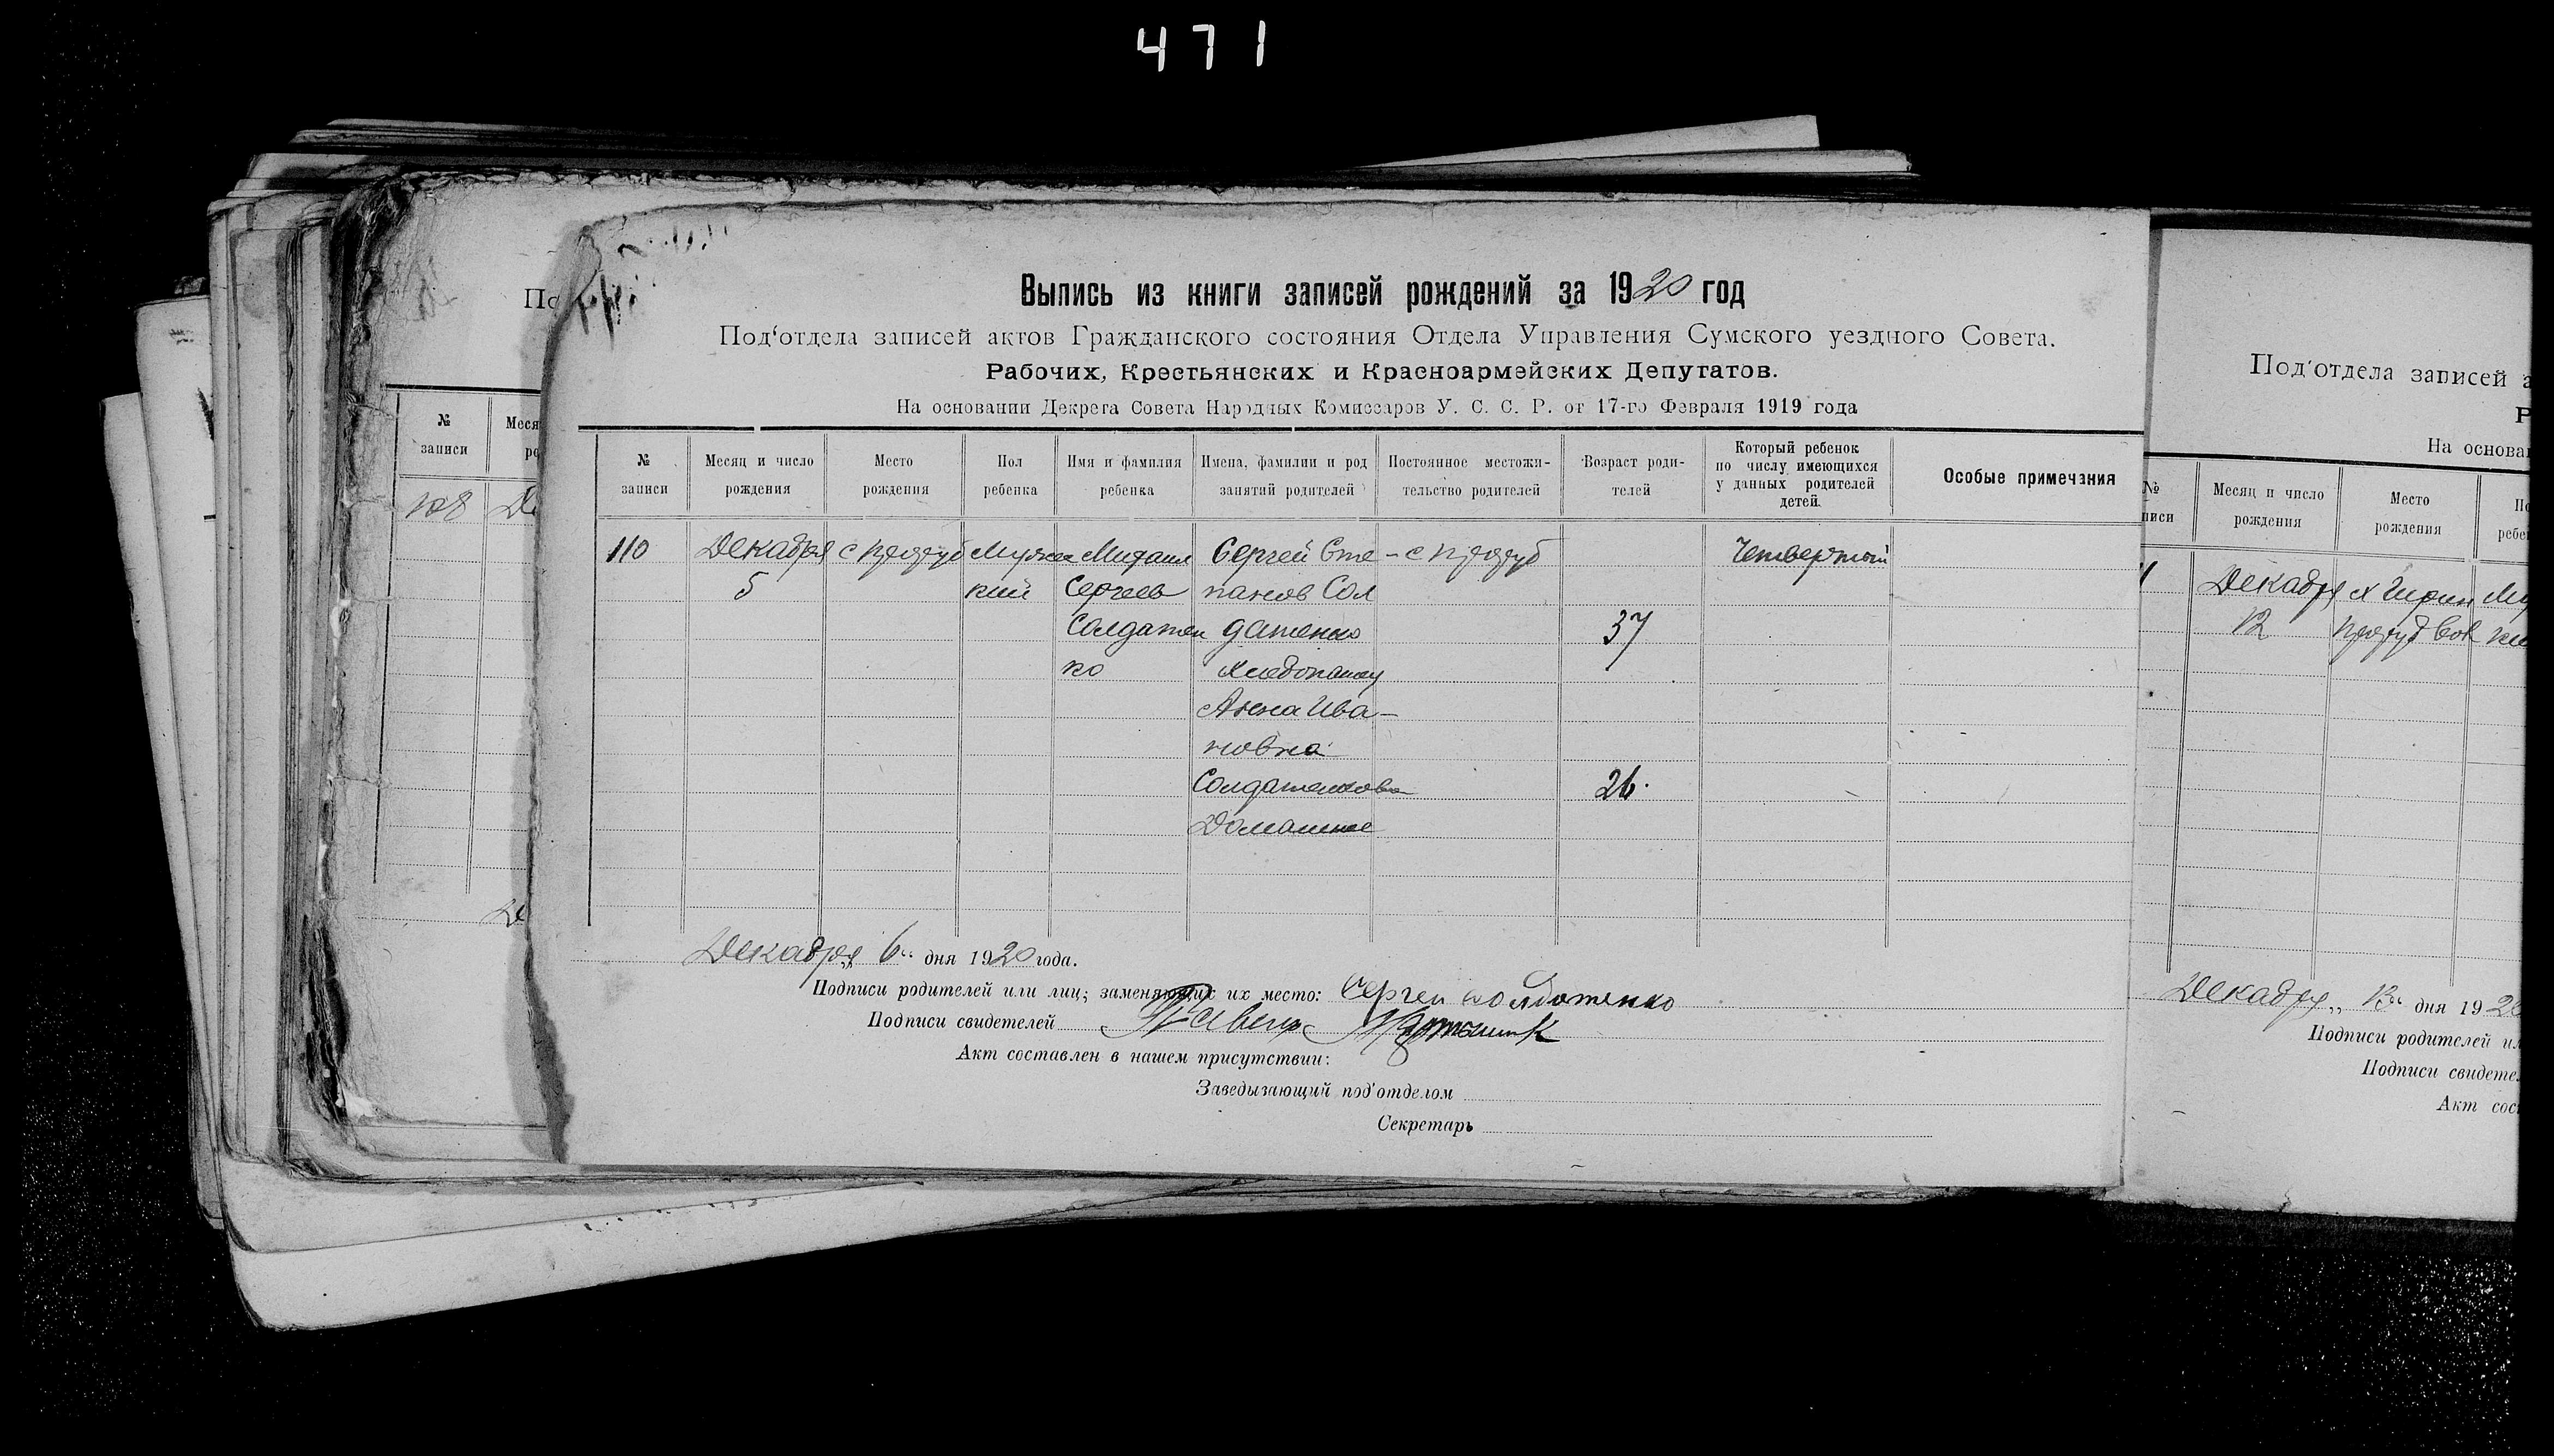 471
Выпись из книги записей рождений за 1920 год
Под‘отдела записей актов Гражданского состояния Отдела Управления Сумского уездного Совета.
Рабочих, Крестьянских и Красноармейских Депутатов.
На основании Декрета Совета Народных Комиссаров У. С. С. Р. от 17-го Февраля 1919 года
№ записи
Месяц и число рождения
Место рождения
Пол ребенка
Имя и фамилия ребенка
Имена, фамилии и род занятий родителей
Постоянное местожи-тельство родителей
Возраст роди-телей
Который ребенок по числу имеющихся у данных родителей детей.
Особые примечания
110
Декабря
5
Мужс
кий
Михаил
Сергеев
Солдатен
ко
Сергей Сте-
панов Сол
датенко
Анна Ива-
новна
Солдатенкова
Домашнее
37
26.
Четвертый
Декабря 6“ дня 1920 года.
Подписи родителей или лиц; заменяющих их место: Сергей Солдатенко
Подписи свидетелей
Акт составлен в нашем присутствии:
Заведызающий под'отделом
Секретарь
По
№ записи
Меся
ро
108
Де
Под‘отдела записей а
Р
На основа
№
писи
Месяц и число рождения
Место рождения
По
ребе
Декабря
12
Декабря
дня 192
Подписи родителей ил
Подписи свидете
Акт сос